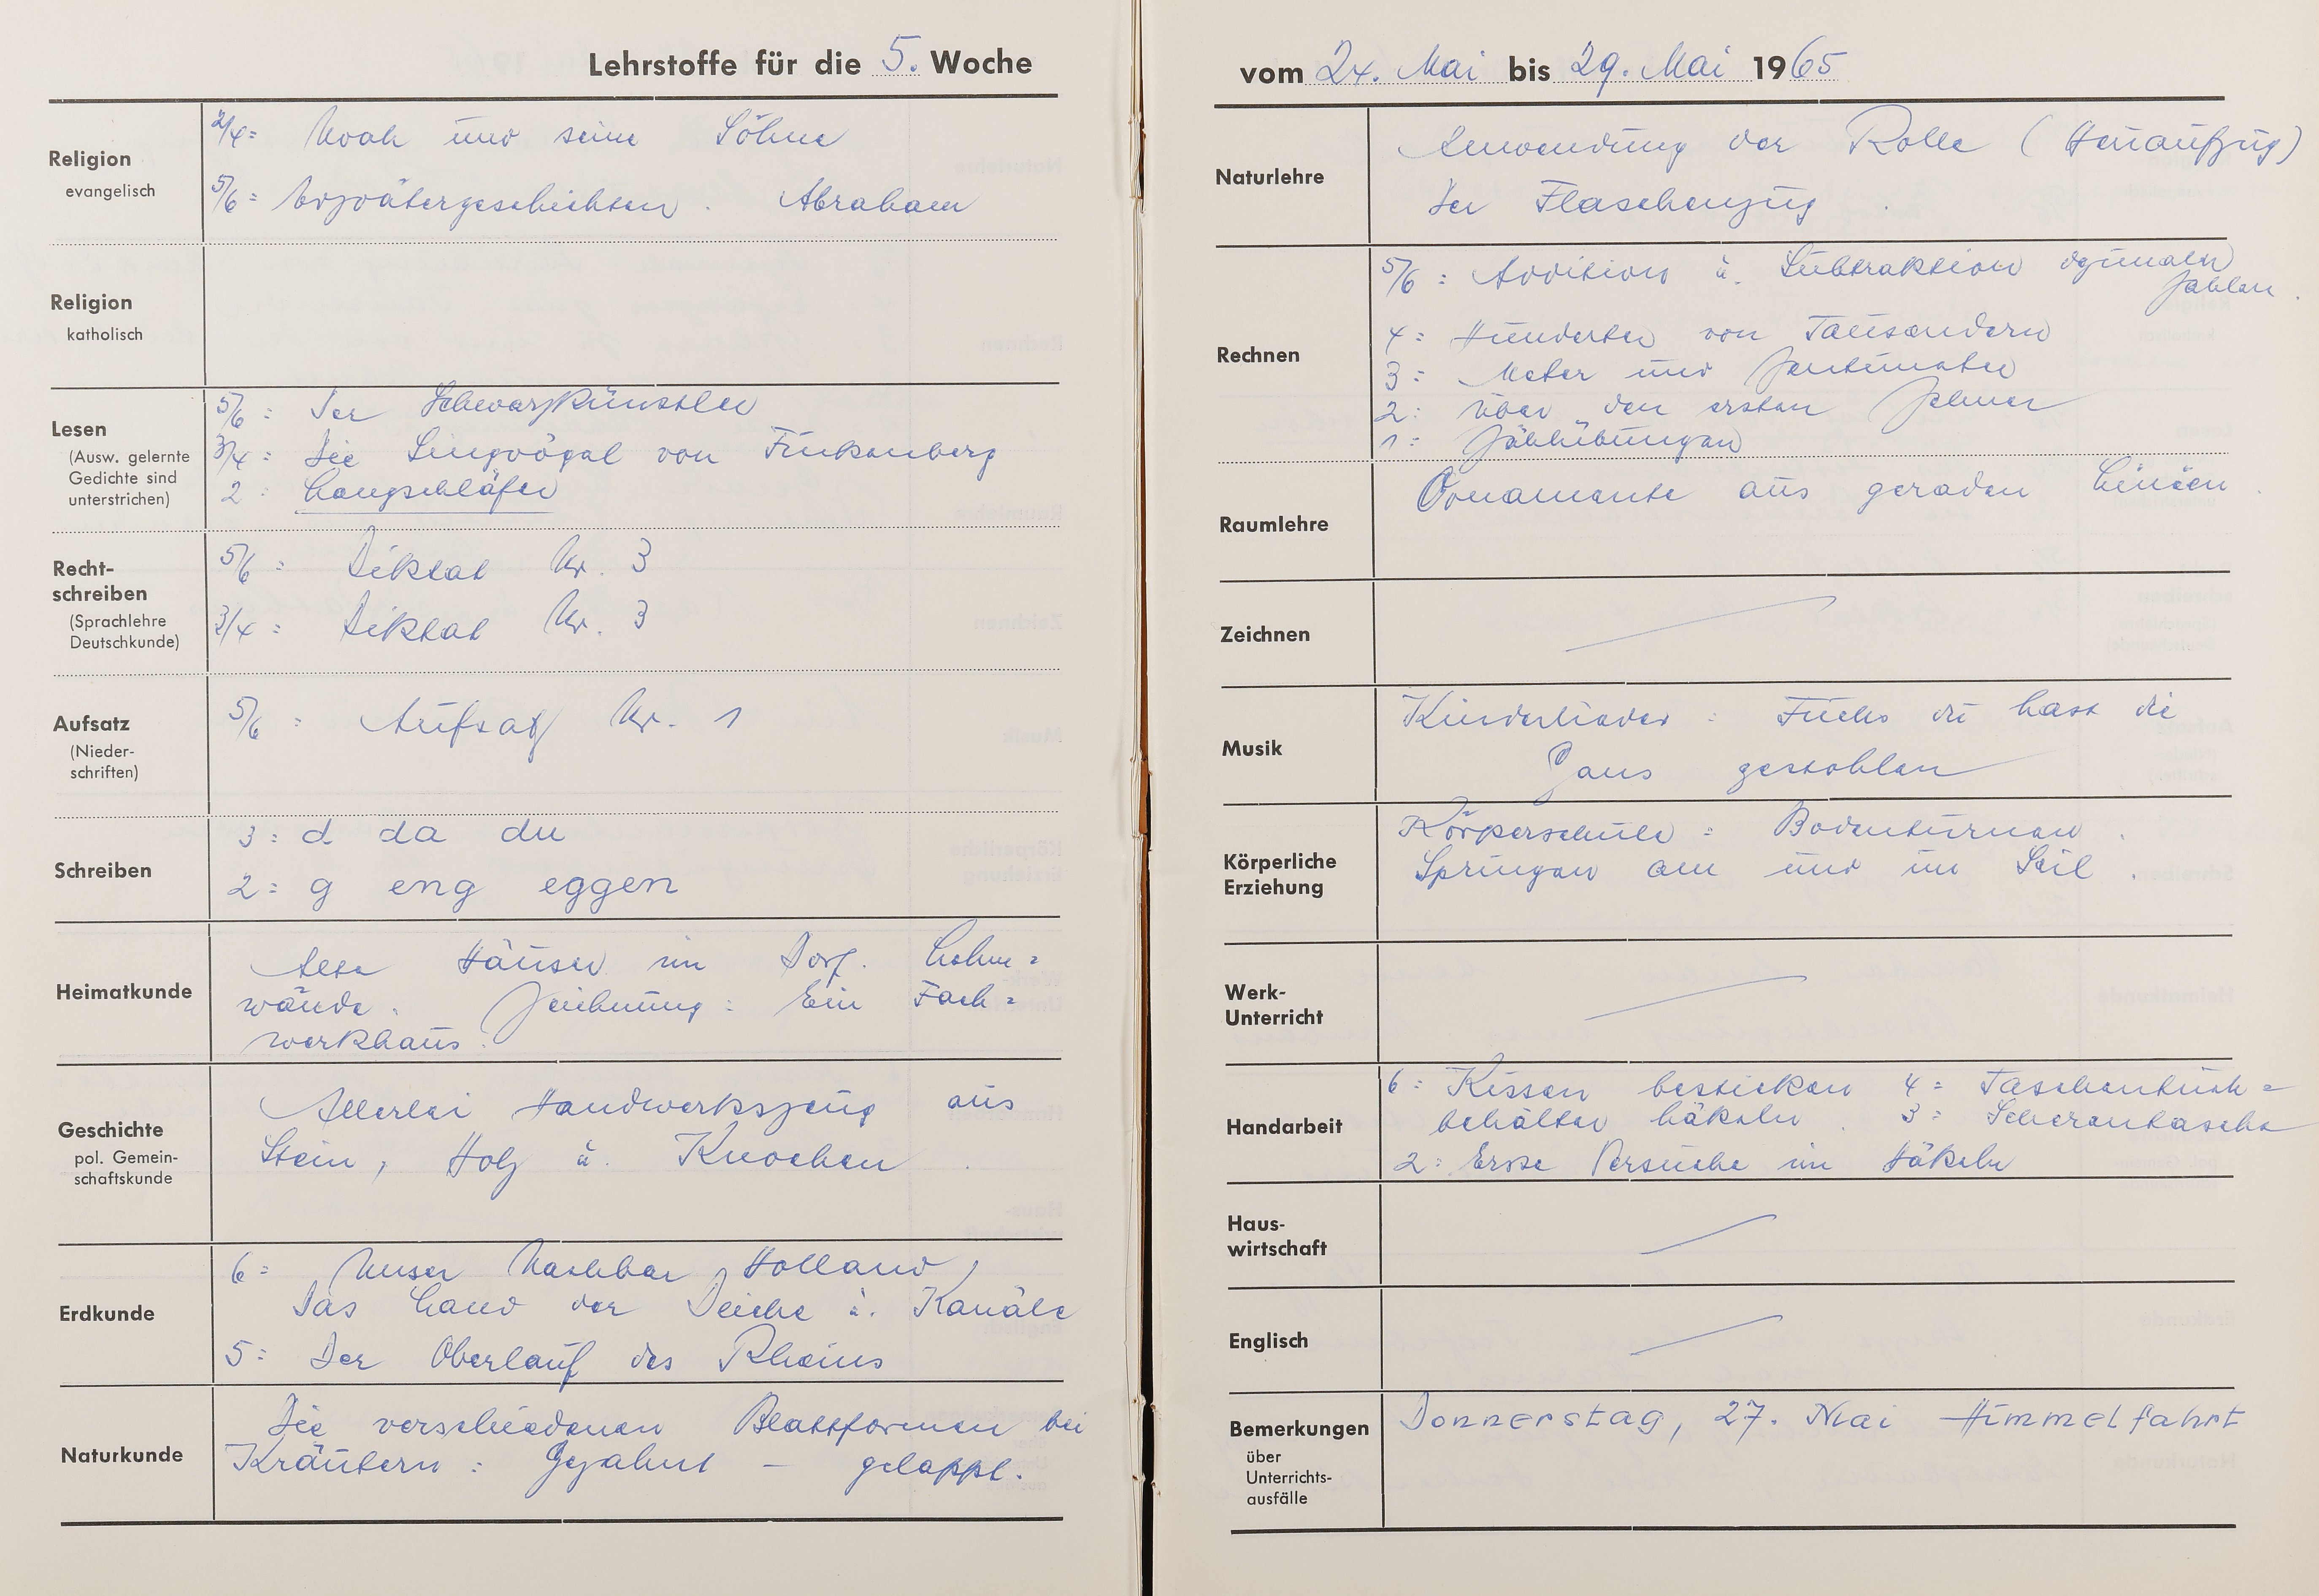 Lehrstoffe für die 5. Woche
Religion
evangelisch
2/4= Noah und seine Söhne
5/6= Erzvätergeschichten. Abraham
Religion
katholisch
Lesen
(Ausw. gelernte
Gedichte sind
unterstrichen)
5/6: Der Schwarzkünstler
3/4= Die Singvögel von Finkenberg
2: Langschläfer
Recht-
schreiben
(Sprachlehre
Deutschkunde)
5/6= Diktat Nr. 3
3/4= Diktat Nr. 3
Aufsatz
(Nieder-
schriften)
5/6: Aufsatz Nr. 1
Schreiben
3: d da du
2= g eng eggen
Heimatkunde
Alte Häuser im Dorf. Lehm=
wände. Zeichnung: Ein Fach=
werkhaus.
Geschichte
pol. Gemein-
schaftskunde
Allerlei Handwerkszeug aus
Stein, Holz u. Knochen.
Erdkunde
6= Unser Nachbar Holland,
Das Land der Deiche u. Kanäle
5: Der Oberlauf des Rheins
Naturkunde
Die verschiedenen Blattformen bei
Kräutern: Gezahnt - gelappt.
vom 24. Mai bis 29. Mai 1965
Naturlehre
Anwendung der Rolle (Heuaufzug)
Der Flaschenzug.
Rechnen
5/6: Addition u. Subtraktion dezimaler
Zahlen.
4: Hunderter von Tausendern
3: Meter und Zentimeter
2: Über den ersten Zehner
1= Zählübungen
Raumlehre
Ornamente aus geraden Linien.
Zeichnen
Musik
Kinderlieder: Fuchs du hast die
Gans gestohlen
Körperliche
Erziehung
Körperschule: Bodenturnen.
Springen am und im Seil.
Werk-
Unterricht
Handarbeit
6: Kissen besticken 4= Taschentuch=
behälter häkeln. 3= Scherentasche
2: Erste Versuche im Häkeln
Haus-
wirtschaft
Englisch
Bemerkungen
über
Unterrichts-
ausfälle
Donnerstag, 27. Mai Himmelfahrt